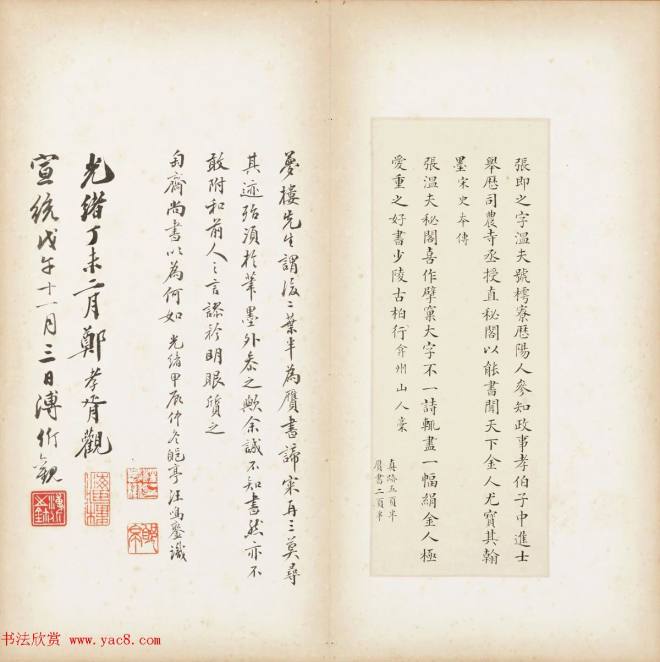 張即之字溫夫號樗寮歷陽人參知政事孝伯子中進士
舉歷司農寺丞授直秘閣以能書聞天下金人尤寶其翰
墨宋史本傳
張溫夫秘閣喜作擘窠大字不一詩輒盡一幅絹金人極
愛重之好書少陵古柏行弇州山人稾
真跡五頁半
贗書二頁半
夢樓先生謂後二葉半為贗書諦宷再三莫尋
其迹殆須於筆墨外叅之歟余誠不知書然亦不
敢附和前人之言謬於明眼質之
匋齋尚書以為何如 光緒甲辰仲冬郋亭汪鳴鑾識
光緒丁未二月鄭孝胥觀
宣統戊午十一月三日溥忻觀
书法欣赏 www.yac8.com